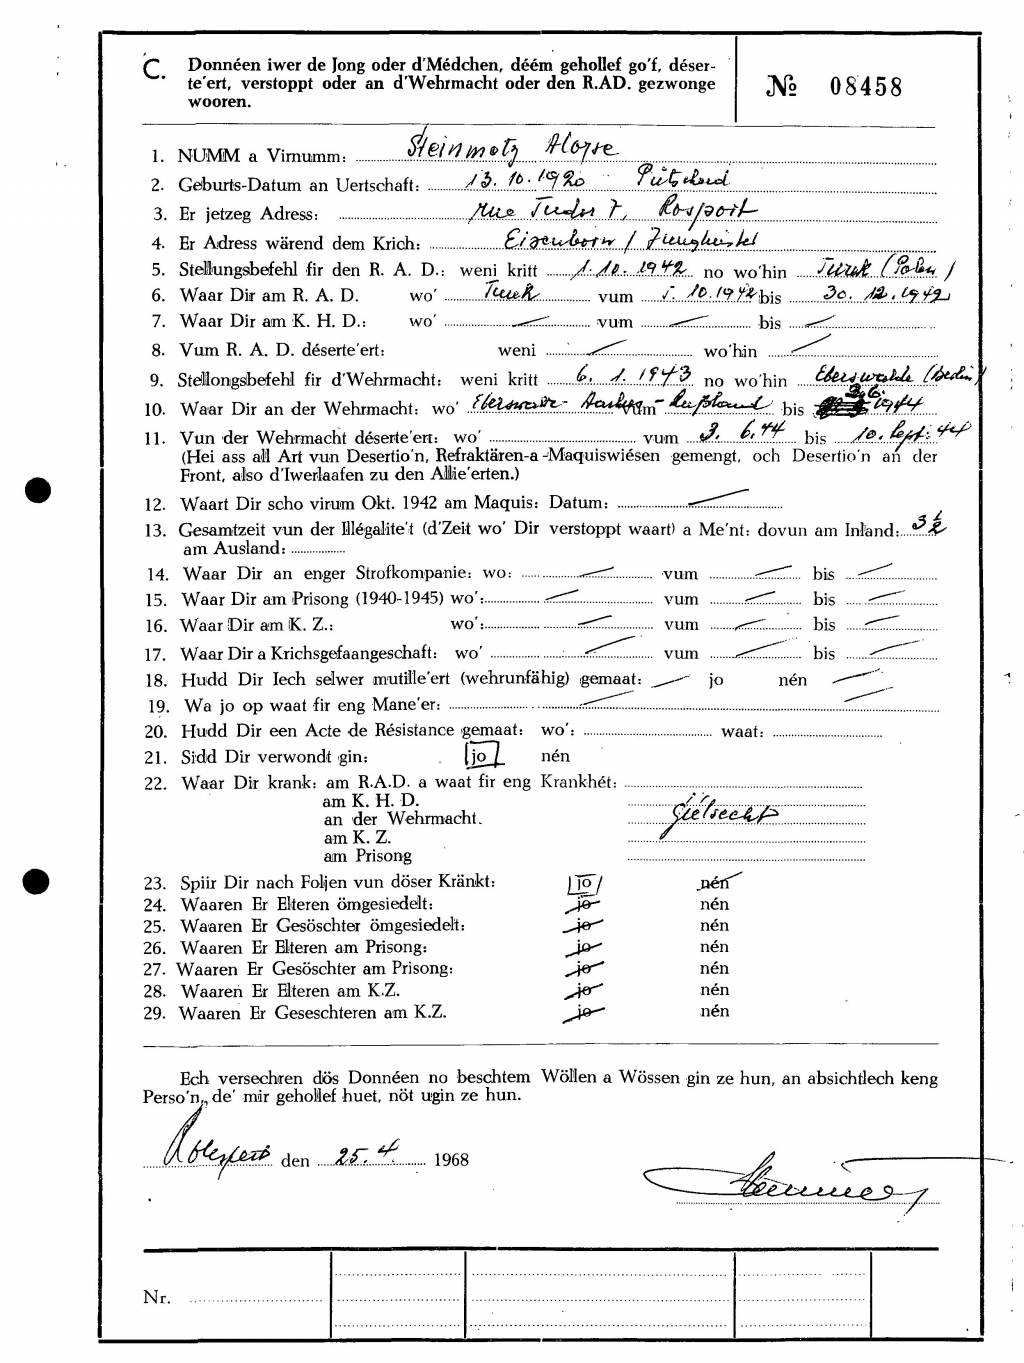 C. Donnéen iwer de Jong oder d'Médchen, déém gehollef go'f, déser-
te'ert, verstoppt oder an d'Wehrmacht oder den R.AD. gezwonge
wooren.
№ 08458
1. NUMM a Virnumm: Steinmetz Aloyse
2. Geburts-Datum an Uertschaft: 13.10.1920 Pütscheid
3. Er jetzeg Adress: Rue Tudor 7, Rosport
4. Er Adress wärend dem Krich: Eisenborn /
5. Stellungsbefehl fir den R. A. D.: weni kritt 1.10.1942 no wo'hin Turek (Polen)
6. Waar Dir am R. A. D. wo' Turek vum 5.10.1942 bis 30.12.1942
7. Waar Dir am K. H. D.: wo' — vum — bis —
8. Vum R. A. D. déserte'ert: weni — wo'hin —
9. Stellongsbefehl fir d'Wehrmacht: weni kritt 6.1.1943 no wo'hin Eberswalde (Berlin)
10. Waar Dir an der Wehrmacht: wo' Eberswalde - Aarhus - Rußland vum bis 3.6.1944
11. Vun der Wehrmacht déserte'ert: wo' vum 3.6.44 bis 10. Sept. 44
(Hei ass all Art vun Desertio'n, Refraktären-a-Maquiswiésen gemengt, och Desertio'n an der
Front, also d'Iwerlaafen zu den Allie'erten.)
12. Waart Dir scho virum Okt. 1942 am Maquis: Datum: —
13. Gesamtzeit vun der Illégalite't (d'Zeit wo' Dir verstoppt waart) a Me'nt: dovun am Inland: 3 ½
am Ausland:
14. Waar Dir an enger Strofkompanie: wo: — vum — bis —
15. Waar Dir am Prisong (1940-1945) wo': — vum — bis —
16. Waar Dir am K. Z.: wo': — vum — bis —
17. Waar Dir a Krichsgefaangeschaft: wo' — vum — bis —
18. Hudd Dir Iech selwer mutille'ert (wehrunfähig) gemaat: — jo nén —
19. Wa jo op waat fir eng Mane'er: —
20. Hudd Dir een Acte de Résistance gemaat: wo': waat:
21. Sidd Dir verwondt gin: jo nén
22. Waar Dir krank: am R.A.D. a waat fir eng Krankhét:
am K. H. D.
an der Wehrmacht. Gielsecht
am K. Z.
am Prisong
23. Spiir Dir nach Foljen vun döser Kränkt: jo nén
24. Waaren Er Elteren ömgesiedelt: jo nén
25. Waaren Er Gesöschter ömgesiedelt: jo nén
26. Waaren Er Elteren am Prisong: jo nén
27. Waaren Er Gesöschter am Prisong: jo nén
28. Waaren Er Elteren am K.Z. jo nén
29. Waaren Er Geseschteren am K.Z. jo nén
Ech versechren dös Donnéen no beschtem Wöllen a Wössen gin ze hun, an absichtlech keng
Perso'n, de' mir gehollef huet, nöt ugin ze hun.
den 25.4 1968
Nr.